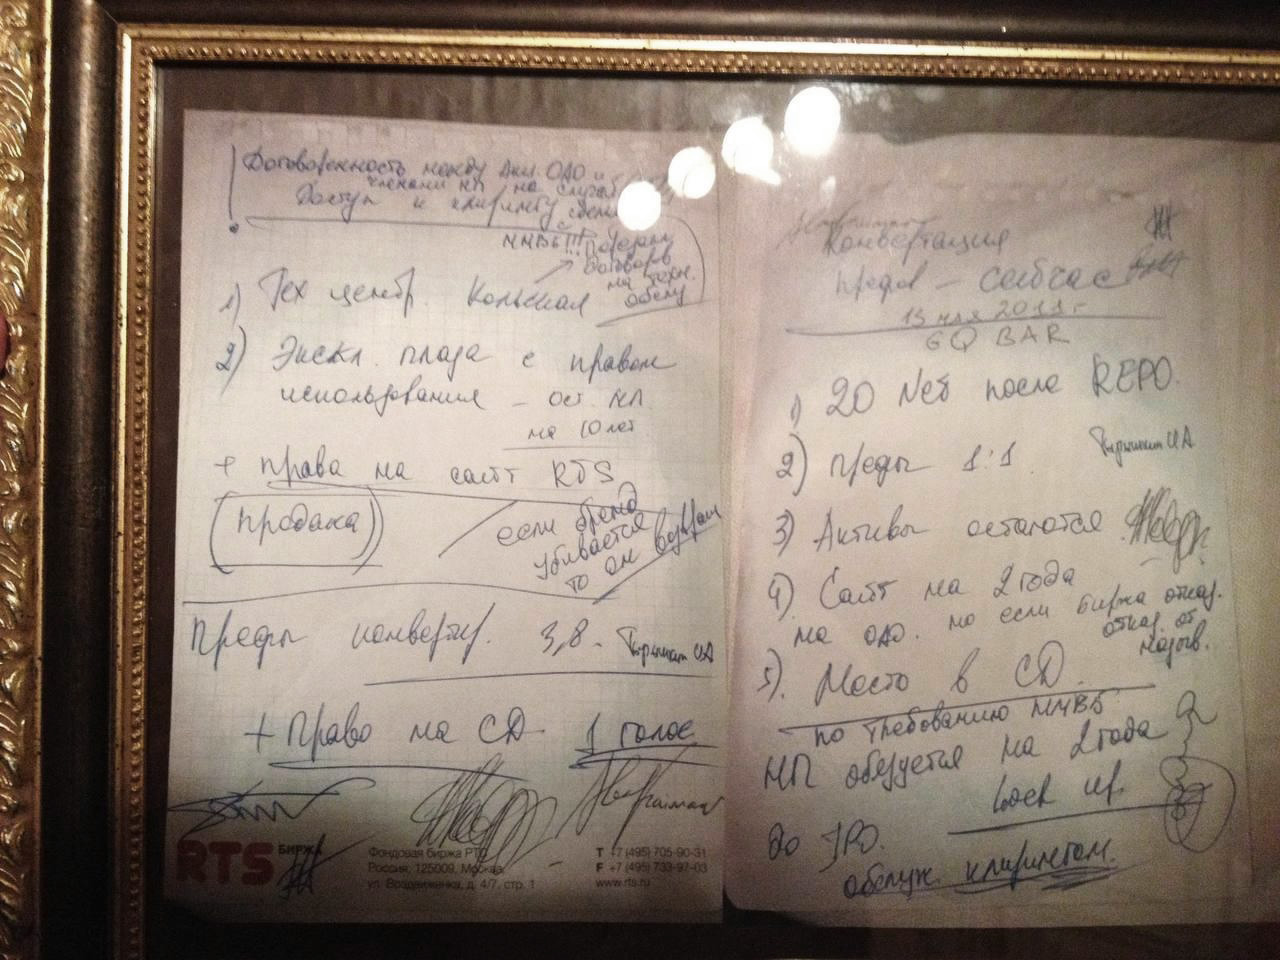 ! Договоренность между Акц. ОАО и
членами НП на случай
Доступ к клирингу
ММВБ!!!
договоров
на техн.
обслу
1) Тех центр.
2) Экскл. плаза с правом
использования – ост. НП.
на 10 лет
+ права на сайт RTS
(продажа)
если бренд
убивается
то он возвращ
Префы конвертир. 3,8.
+ Право на СД 1 голос
RTS БИРЖА
Фондовая биржа РТС
Россия, 125009, Москва,
ул. Воздвиженка, д. 4/7, стр. 1
T +7 (495) 705-90-31
F +7 (495) 733-97-03
www.rts.ru
Конвертация
префов – сейчас
13 мая 2011 г
GQ BAR
1) 20 Neб после REPO.
2) префы 1:1.
3) Активы остаются
4) Сайт на 2 года
на ОАО. но если биржа отказ.
отказ. от
назыв.
5). Место в СД.
по требованию ММВБ
НП обязуется на 2 года
Lock up.
до IPO.
обслуж. клирингом.